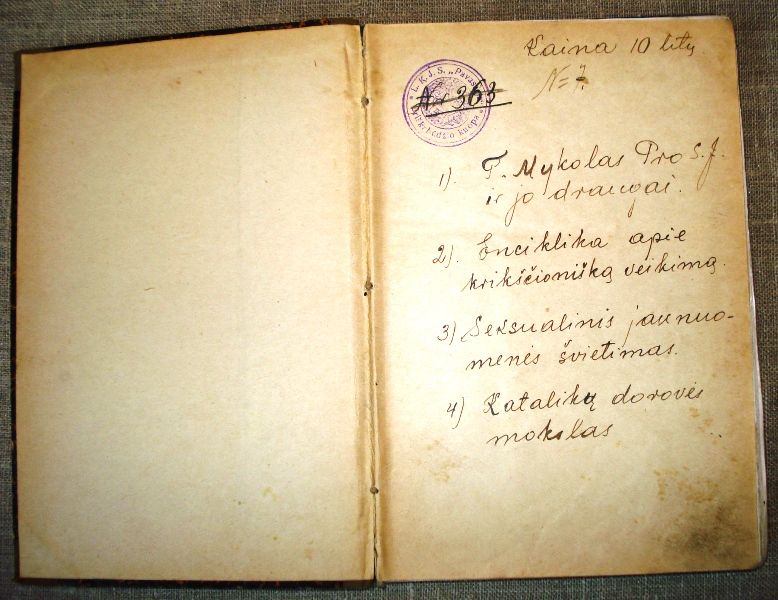 Kaina 10 litų
N=7.
L.K.J.S. „Pavas
kuopa
N 363
1). T. Mykolas Pro S.J.
ir jo draugai.
2). Enciklika apie
krikščionišką veikimą.
3) Seksualinis jaunuo-
menės švietimas.
4) Katalikų dorovės
mokslas